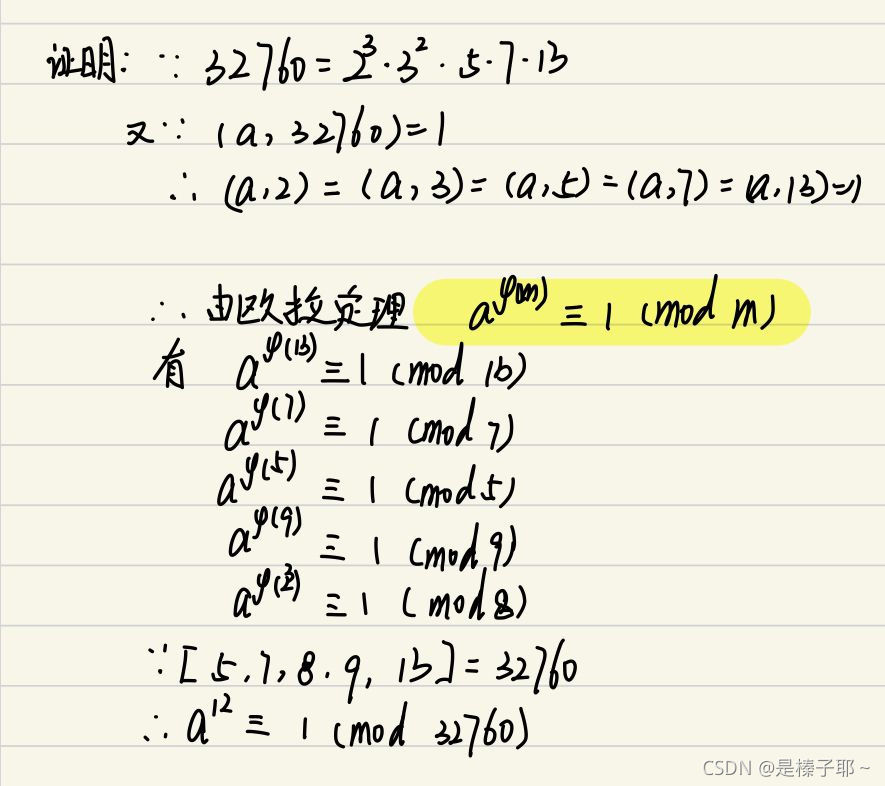 证明: ∵ 32760 = 2³·3²·5·7·13
又∵ (a, 32760)=1
∴ (a,2) = (a,3) = (a,5) = (a,7) = (a,13)=1
∴ 由欧拉定理 a^φ(m) ≡ 1 (mod m)
有 a^φ(13) ≡ 1 (mod 13)
a^φ(7) ≡ 1 (mod 7)
a^φ(5) ≡ 1 (mod 5)
a^φ(9) ≡ 1 (mod 9)
a^φ(2³) ≡ 1 (mod 8)
∵ [5,7,8,9,13] = 32760
∴ a¹² ≡ 1 (mod 32760)
CSDN @是榛子耶~